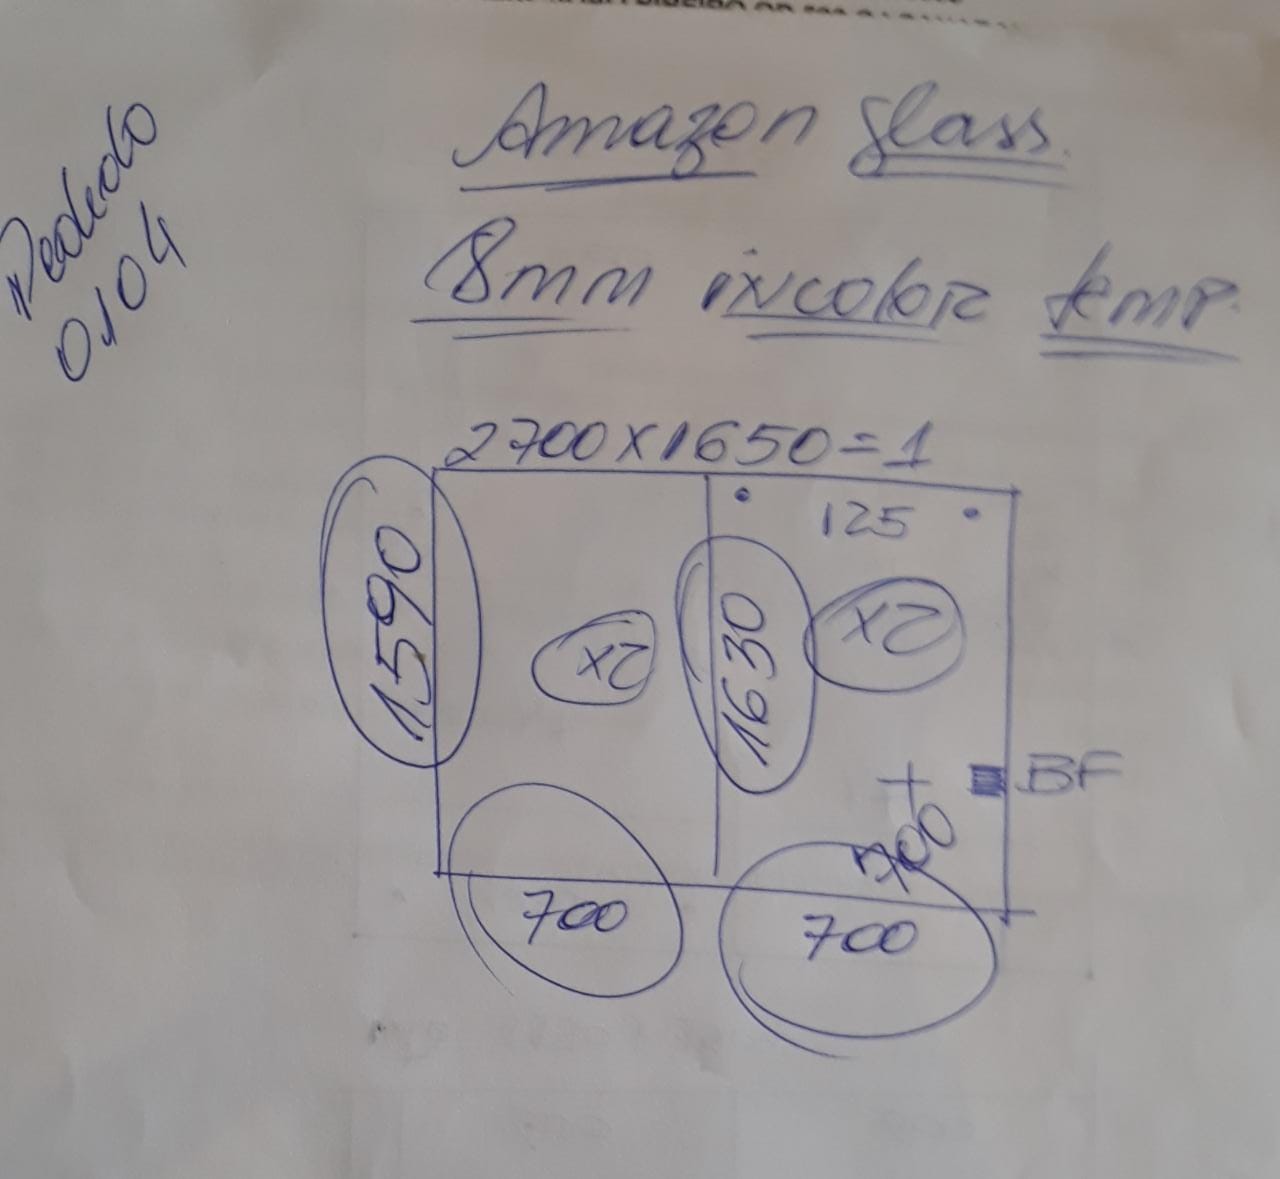 Pedido
0104
Amazon glass.
8mm incolor temp.
2700x1650=1
125
1590
x2
1630
x2
BF
700
700
700